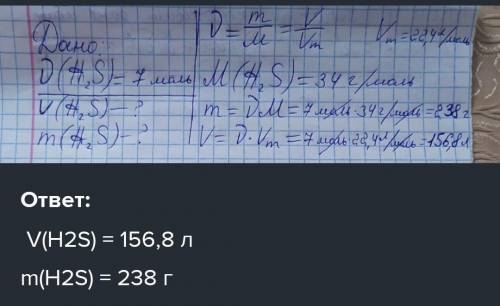 Дано:
ν(H₂S) = 7 моль
V(H₂S) - ?
m(H₂S) - ?
ν = m/M = V/Vm Vm = 22,4 л/моль
M(H₂S) = 34 г/моль
m = νM = 7 моль · 34 г/моль = 238 г
V = ν · Vm = 7 моль · 22,4 л/моль = 156,8 л
Ответ:
V(H2S) = 156,8 л
m(H2S) = 238 г